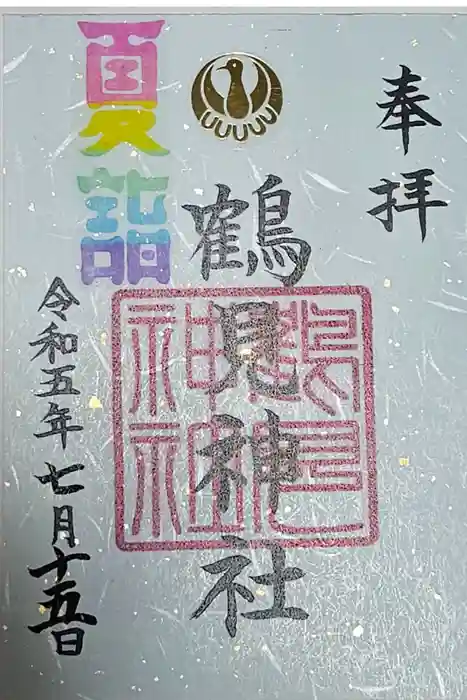 奉拝
鶴見神社
鶴見
神社
夏詣
令和五年七月十五日